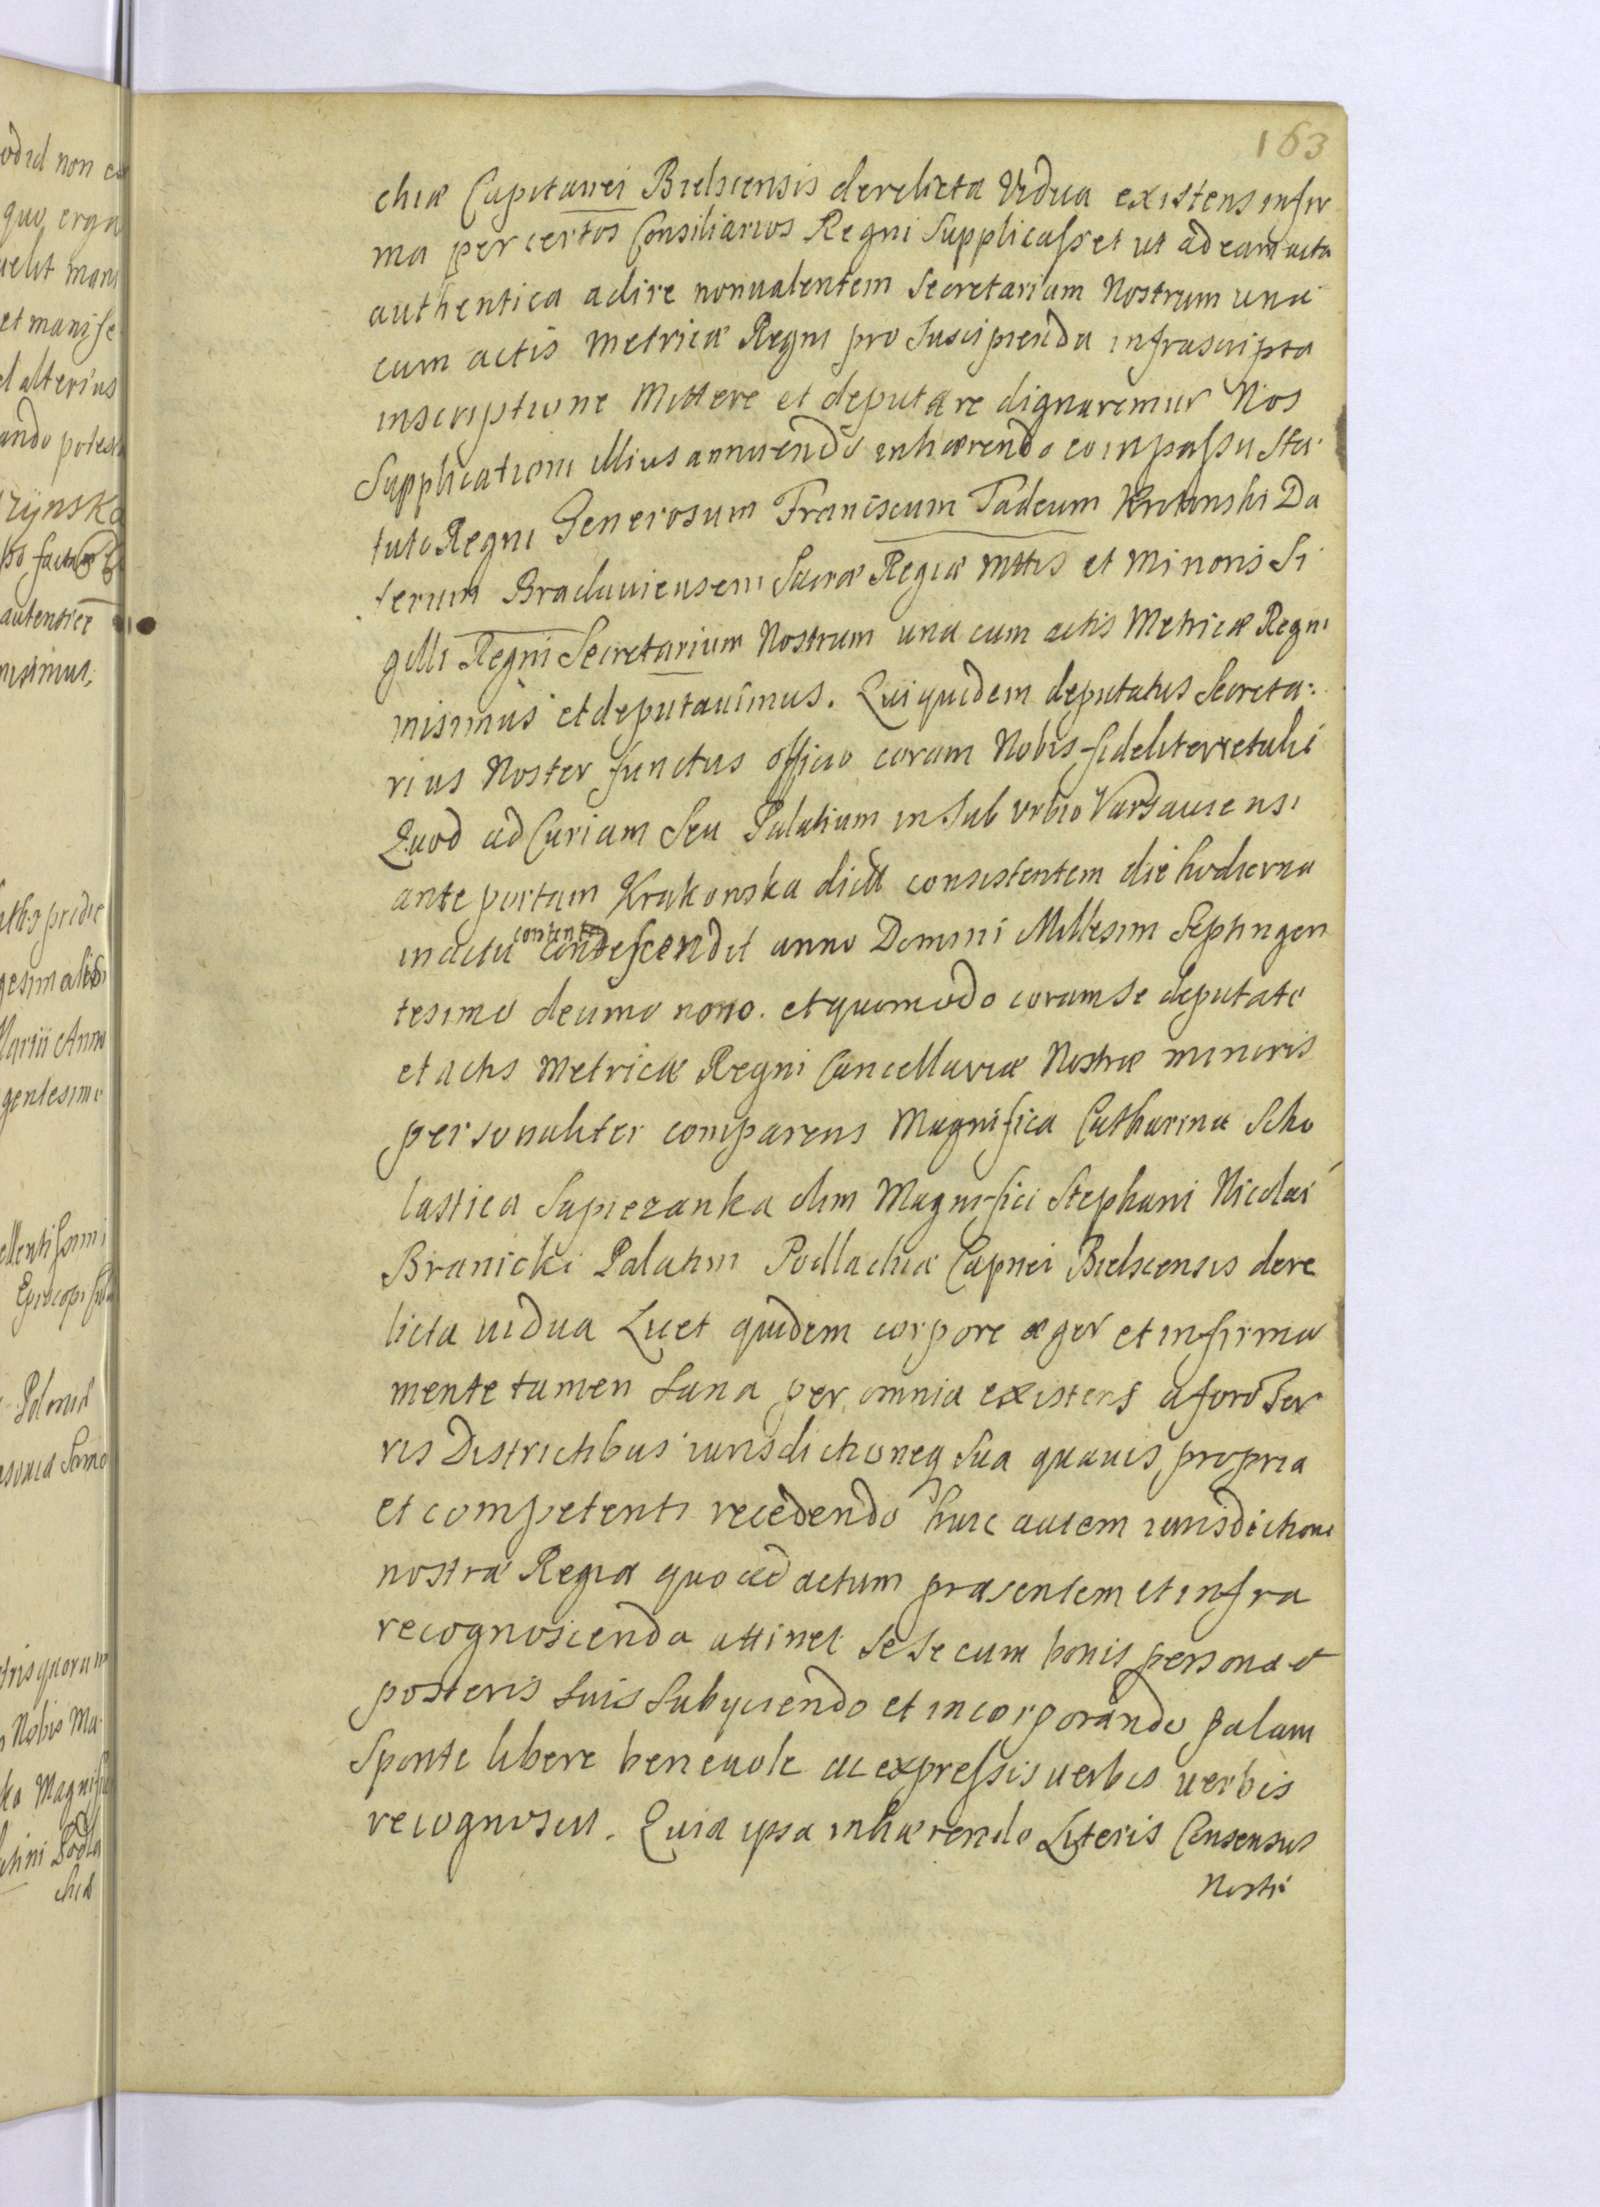 163
chiæ Capitanei Bielscensis derelicta Vidua existens infir
ma per certos Consiliarios Regni Supplicasset ut ad eam acta
authentica adire non ualentem Secretarium Nostrum una
cum actis Metricæ Regni pro Suscipienda infrascripta
inscriptione Mittere et deputare dignaremur Nos
Supplicationi illius annuendo inhærendo compassu Sta
tuto Regni Generosum Franciscum Tadeum Krokonski Da
ferum Braclauiensem Sacræ Regiæ Mttis et Minoris Si
gilli Regni Secretarium Nostrum una cum actis Metricæ Regni
misimus et deputauimus. Qui quidem deputatus Secreta:
rius Noster functus officio coram Nobis fideliter retulit
Quod ad Curiam Seu Palatium in Sub urbio Varsauiensi
ante portam Krakonska dict consistentem die hodierna
in actu contento condescendit anno Domini Millesim Septingen
tesimo decimo nono. et quomodo coram Se deputato
et actis Metricæ Regni Cancellariæ Nostræ minoris
personaliter comparens Magnifica Catharina Scho
lastica Sapiezanka olim Magnifici Stephani Nicolai
Branicki Palatini Podlachiæ Capnei Bielscensis dere
licta uidua Licet quidem corpore æger et infirma
mente tamen Sana per omnia existens a foro Ter
ris Districtibus iurisdictioneq Sua quauis propria
et competenti recedendo huic autem iurisdictioni
nostræ Regiæ quo ad actum præsentem et infra
recognoscenda attinet Se Se cum bonis persona et
posteris Suis Subyciendo et incorporando palam
Sponte libere beneuole ac expressis uerbis uerbis
recognouit. Quia ipsa inhærendo Literis Consensus
Nostri